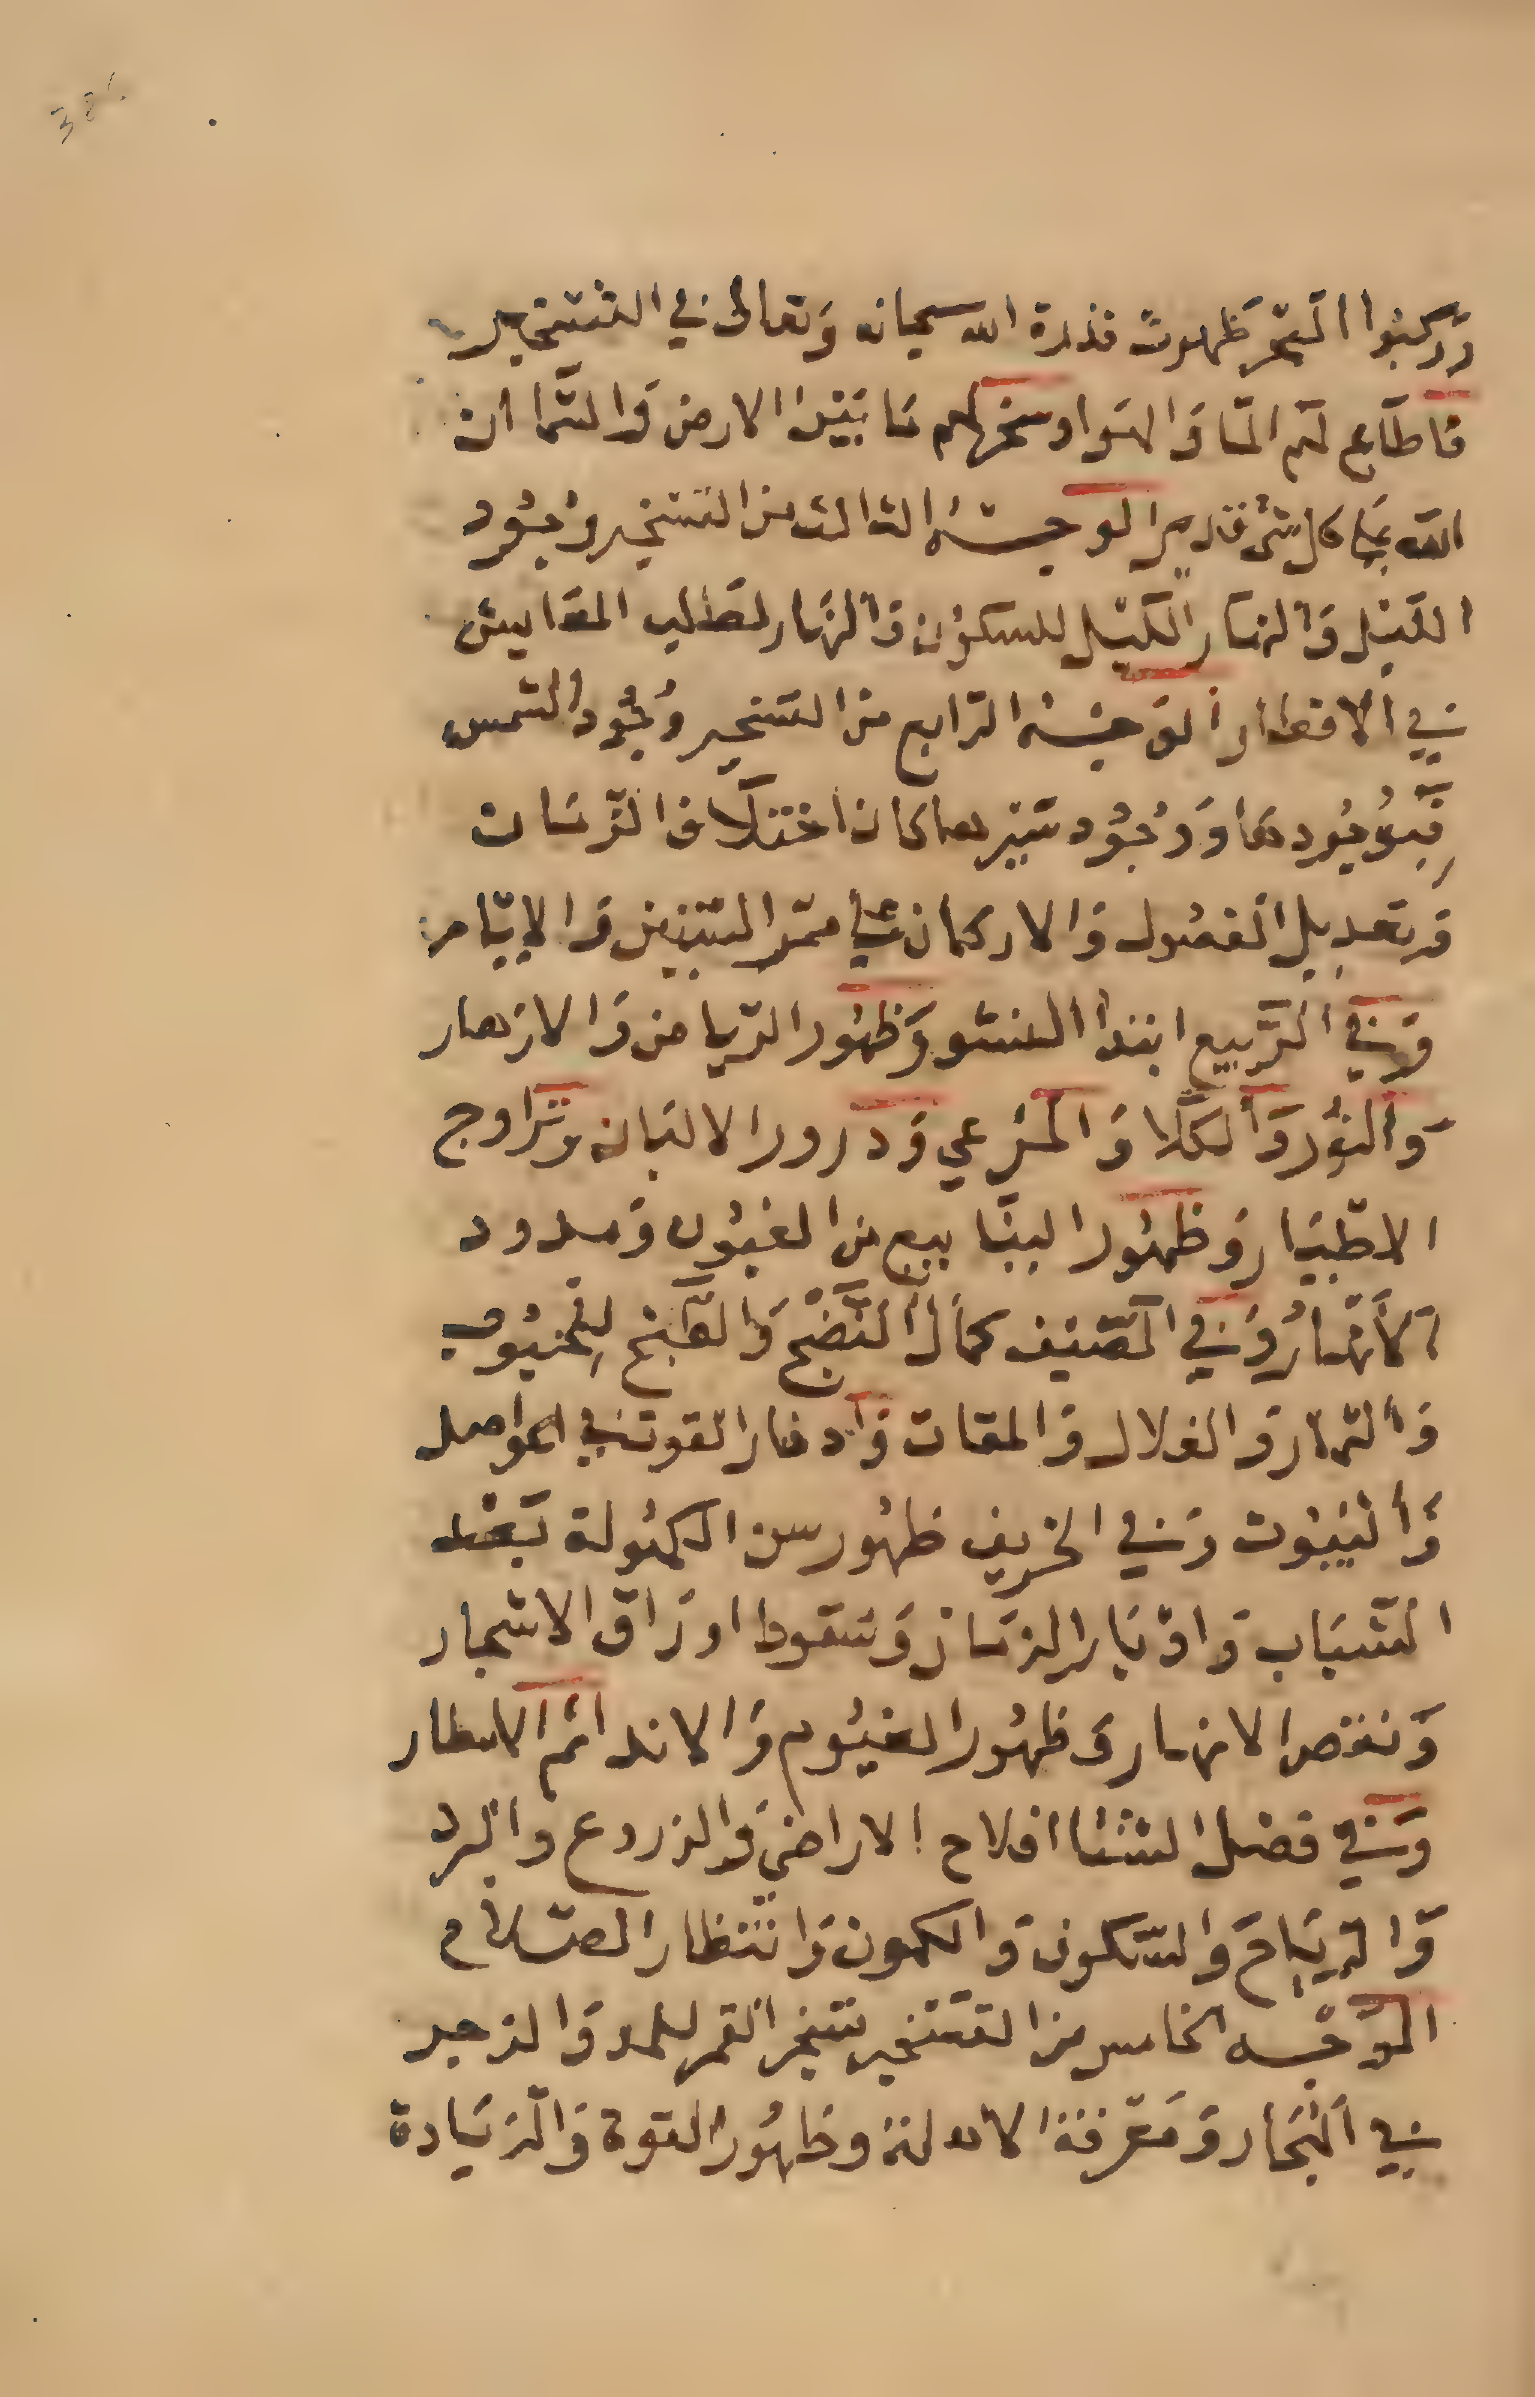 وركبوا البحر ظهرت قدرة الله سبحانه وتعالى في التسخير
فاطاع لهم الما والهوا وسخر لهم ما بين الارض والسما ان
الله على كل شئ قدير الوجه الثالث من التسخير وجود
الليل والنهار الليل للسكون والنهار لطلب المعايش
في الاقطار الوجه الرابع من التسخير وجود الشمس
فبوجودها ووجود سيرها كان اختلاف الزمان
وتعديل الفصول والاركان على ممر السنين والايام
وفي الربيع ابتدا النشو وظهور الرياض والازهار
والنور والكلا والمرعي ودرور الالبان وتزاوج
الاطيار وظهور الينابيع من العيون ومدود
الأنهارُ وفي الصيف كمال النضج والطبخ للحبوب
والثمار والغلال والمقات وادخار القوت في الحواصل
والبيوت وفي الخريف ظهور سن الكهولة بعد
الشباب وادبار الزمان وسقوط اوراق الاشجار
ونقص الانهار وظهور الغيوم والاندا ثم الامطار
وفي فصل الشتا افلاح الاراضي والزروع والبرد
والرياح والسكون والكمون وانتظار الصلاح
الوجه الخامس من التسخير تسخير القمر للمد والزجر
في البحار ومعرفة الادلة وظهور القوة والزيادة